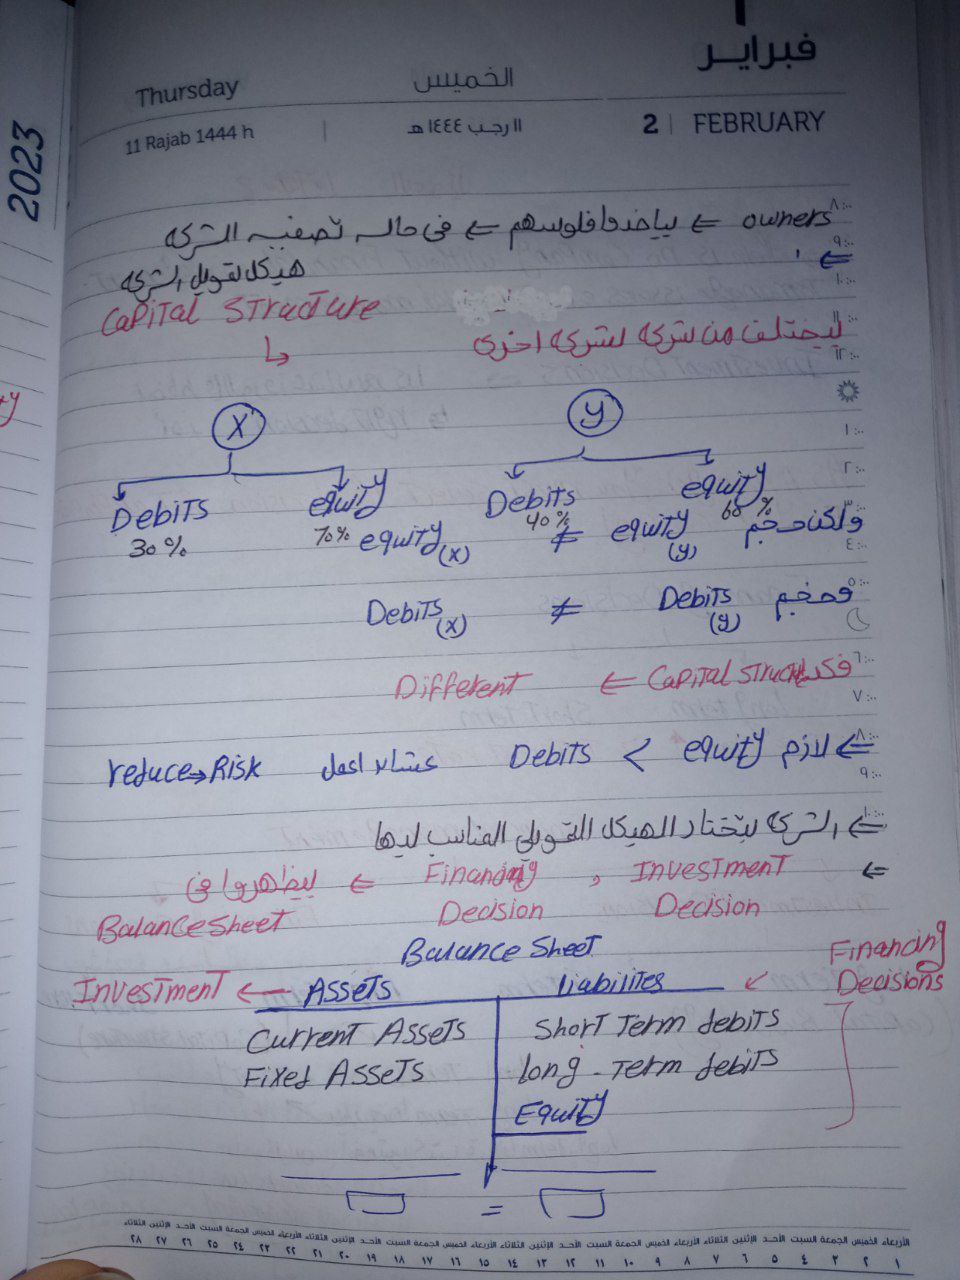 فبراير
Thursday الخميس
11 Rajab 1444 h | ١١ رجب ١٤٤٤ هـ 2 | FEBRUARY
2023
owners ⇐ بياخدوا فلوسهم ⇐ فى حاله تصفيه الشركه
⇐ هيكل تمويل الشركه
Capital Structure
بيختلف من شركه لشركه اخرى
X Y
Debits equity Debits equity
30% 70% 40% 60%
ولكن حجم equity (y) ≠ equity (x)
وحجم Debits (y) ≠ Debits (x)
Capital Structure ⇐ Different
⇐ لازم equity > Debits عشان اعمل reduce → Risk
⇐ الشركه بتختار الهيكل التمويلي المناسب ليها
⇐ Investment Decision , Financing Decision ⇐ بيظهروا فى Balance Sheet
Balance Sheet
Investment ← Assets Liabilites ↙ Financing Decisions
Current Assets Short Term debits
Fixed Assets long-Term debits
Equity
=
الأربعاء الخميس الجمعة السبت الأحد الإثنين الثلاثاء الأربعاء الخميس الجمعة السبت الأحد الإثنين الثلاثاء الأربعاء الخميس الجمعة السبت الأحد الإثنين الثلاثاء الأربعاء الخميس الجمعة السبت الأحد الإثنين الثلاثاء
١ ٢ ٣ ٤ ٥ ٦ ٧ ٨ ٩ ١٠ ١١ ١٢ ١٣ ١٤ ١٥ ١٦ ١٧ ١٨ ١٩ ٢٠ ٢١ ٢٢ ٢٣ ٢٤ ٢٥ ٢٦ ٢٧ ٢٨